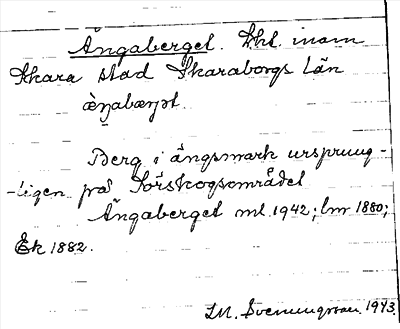 Ängaberget. Lht. inom
Skara stad Skaraborgs Län
æŋabæŋət.
Berg i ängsmark ursprung-
-ligen på Sörskogsområdet
Ängaberget ml. 1942; lmr 1880;
Ek 1882.
I.M. Svenungsson. 1943.